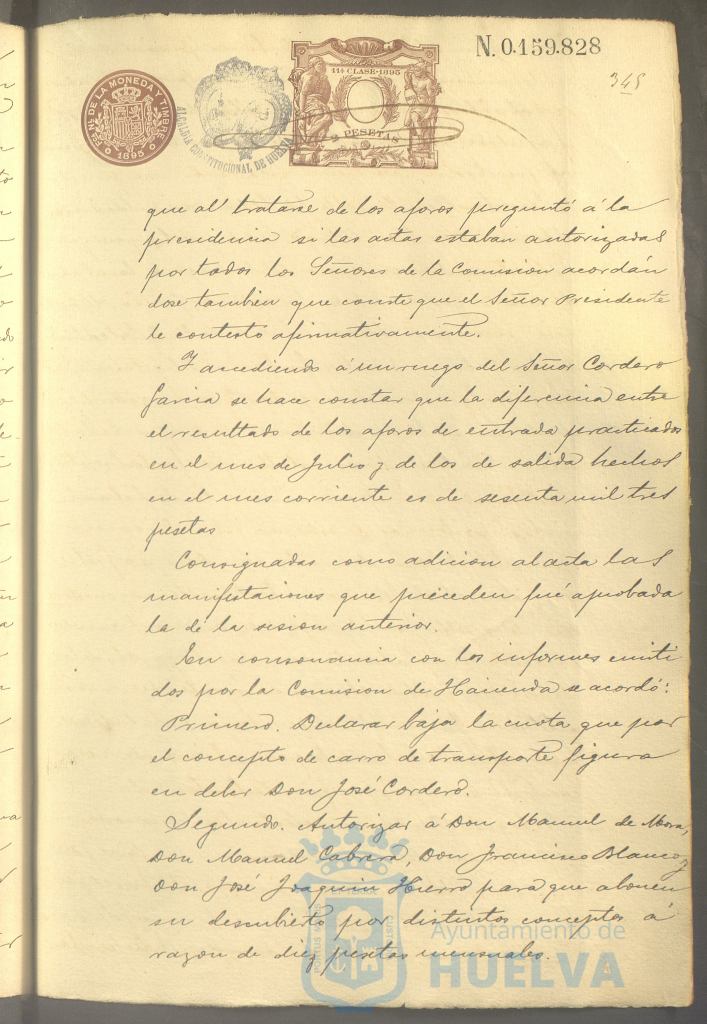 N. 0.159.828
345
FCA NAL DE LA MONEDA Y TIMBRE
1895
ALCALDIA CONSTITUCIONAL DE HUELVA
11ª CLASE-1895
2 PESETAS
que al tratarse de los aforos preguntó á la
presidencia si las actas estaban autorizadas
por todos los Señores de la Comision acordán
dose tambien que conste que el Señor Presidente
le contestó afirmativamente.
Y accediendo á un ruego del Señor Cordero
Garcia se hace constar que la diferencia entre
el resultado de los aforos de entrada practicados
en el mes de Julio y de los de salida hechos
en el mes corriente es de sesenta mil tres
pesetas
Consignadas como adicion al acta las
manifestaciones que preceden fué aprobada
la de la sesion anterior.
En consonancia con los informes emiti
dos por la Comision de Hacienda se acordó:
Primero. Declarar baja la cuota que por
el concepto de carro de transporte figura
en deber Don José Cordero.
Segundo. Autorizar á Don Manuel de Mora,
Don Manuel Cabrera, Don Francisco Blanco y
Don José Joaquin Hierro para que abonen
su descubierto por distintos conceptos á
razon de diez pesetas mensuales.
Ayuntamiento de
HUELVA